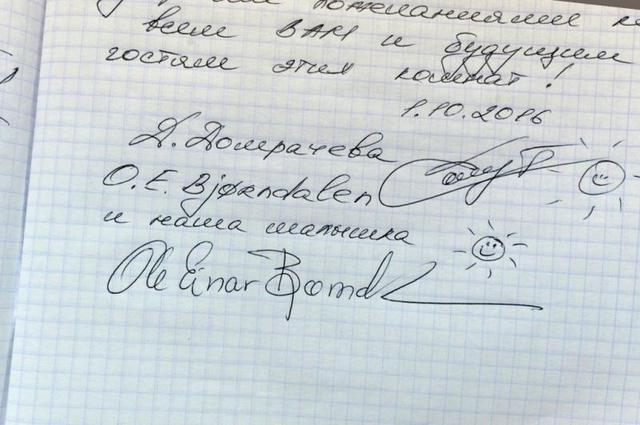 пожеланиями
всем ВАМ и будущим
гостям этих комнат!
1.10.2016
Д. Домрачева
O. E. Bjørndalen
и наша малышка
Ole Einar Bjørnd